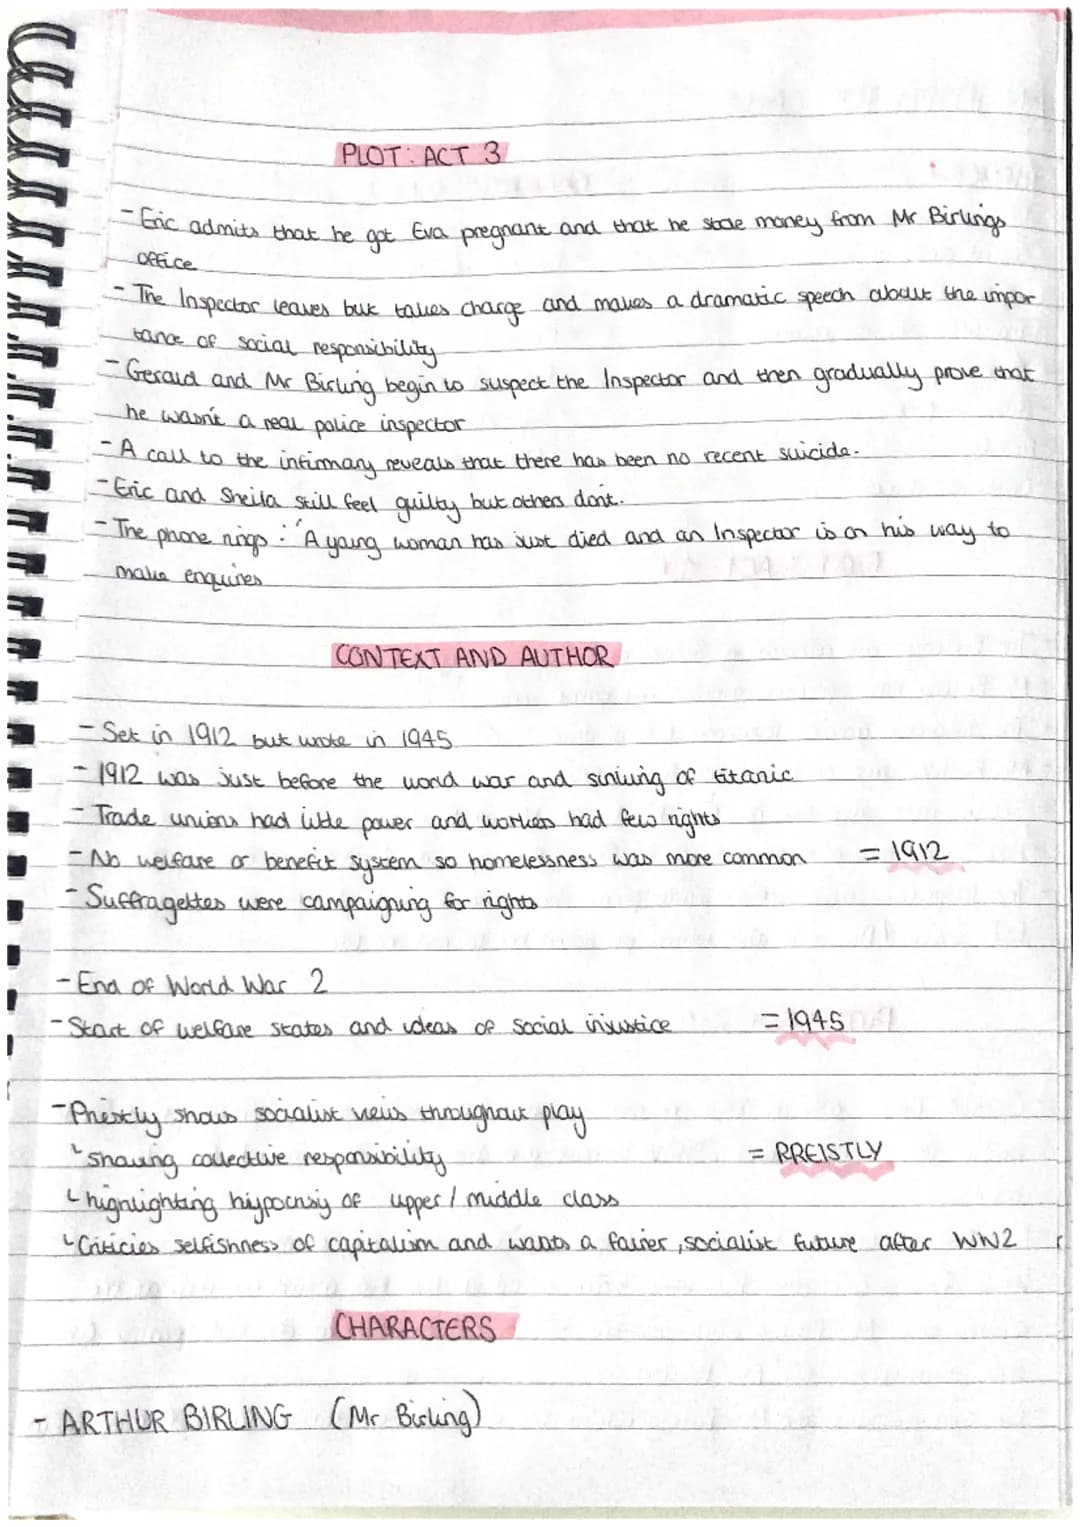 PLOT: ACT 3
- Eric admits that he got Eva pregnant and that he stole money from Mr Birlings
office
- The Inspector leaves but takes charge and makes a dramatic speech about the impor
tance of social responsibility
- Gerald and Mr Birling begin to suspect the Inspector and then gradually prove that
he wasn't a real police inspector
- A call to the infirmary reveals that there has been no recent suicide.
- Eric and Sheila still feel guilty but others dont.
- The phone rings : "A young woman has just died and an Inspector is on his way to
make enquires
CONTEXT AND AUTHOR
- Set in 1912 but wrote in 1945
- 1912 was just before the world war and sinking of titanic
- Trade unions had little power and workers had few rights
- No welfare or benefit system so homelessness was more common = 1912
- Suffragettes were campaigning for rights
- End of World War 2
- Start of welfare states and ideas of social injustice = 1945
- Priestly shows socialist views throughout play
↳ showing collective responsibility = PREISTLY
↳ highlighting hiypocrisy of upper / middle class
↳ Criticies selfishness of capitalism and wants a fairer, socialist future after WW2
CHARACTERS
- ARTHUR BIRLING (Mr Birling)